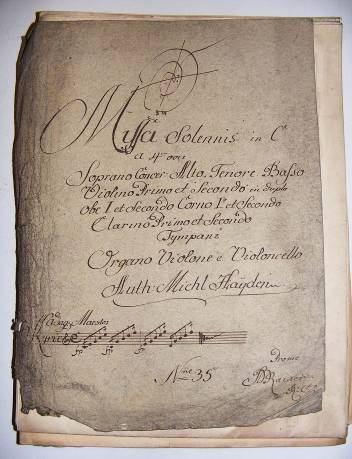 Missa Solennis in C.
a 4 voci
Soprano Concer: Alto, Tenore Basso
Violino Primo et Secondo in duplo
Oboe I et Secondo Corno I et Secondo
Clarino Primo et Secondo
Tympani
Organo Violone e Violoncello
Auth: Michl Hayden
Maestos
Nro 35